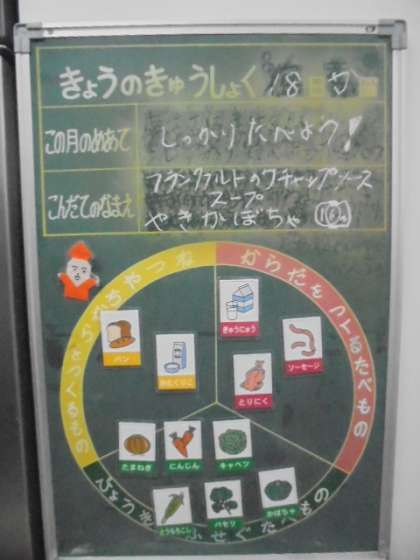 きょうのきゅうしょく 18日 か
この月のめあて
しっかりたべよう！
こんだてのなまえ
フランクフルトのケチャップソース
スープ
やきかぼちゃ
ちからやねつをつくるもの
からだをつくるたべもの
ぎゅうにゅう
パン
こむぎこ
ソーセージ
とりにく
たまねぎ
にんじん
キャベツ
とうもろこし
パセリ
かぼちゃ
びょうきをふせぐたべもの